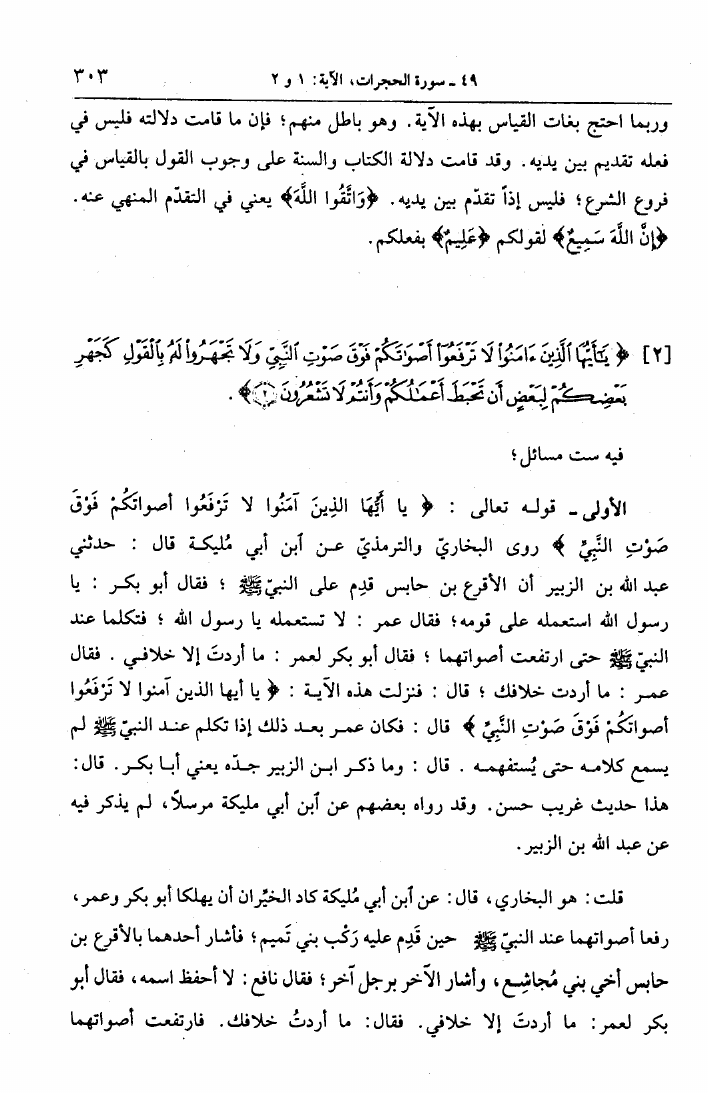 ٤٩ ـ سورة الحجرات، الآية: ١ و ٢ ٣٠٣
وربما احتج بغات القياس بهذه الآية. وهو باطل منهم؛ فإن ما قامت دلالته فليس في
فعله تقديم بين يديه. وقد قامت دلالة الكتاب والسنة على وجوب القول بالقياس في
فروع الشرع؛ فليس إذاً تقدّم بين يديه. ﴿وَاتَّقُوا اللَّهَ﴾ يعني في التقدّم المنهي عنه.
﴿إِنَّ اللَّهَ سَمِيعٌ﴾ لقولكم ﴿عَلِيمٌ﴾ بفعلكم.
[٢] ﴿ يَٰٓأَيُّهَا ٱلَّذِينَ ءَامَنُوا۟ لَا تَرْفَعُوٓا۟ أَصْوَٰتَكُمْ فَوْقَ صَوْتِ ٱلنَّبِيِّ وَلَا تَجْهَرُوا۟ لَهُۥ بِٱلْقَوْلِ كَجَهْرِ
بَعْضِكُمْ لِبَعْضٍ أَن تَحْبَطَ أَعْمَٰلُكُمْ وَأَنتُمْ لَا تَشْعُرُونَ ﴿٢﴾ ﴾ .
فيه ست مسائل؛
الأولى ـ قوله تعالى : ﴿ يا أَيُّهَا الذِينَ آمَنُوا لا تَرْفَعُوا أصواتكُمْ فَوْقَ
صَوْتِ النَّبِيِّ ﴾ روى البخاريّ والترمذيّ عن ٱبن أبي مُليكة قال : حدثني
عبد الله بن الزبير أن الأقرع بن حابس قدِم على النبيّ ﷺ ؛ فقال أبو بكر : يا
رسول الله استعمله على قومه؛ فقال عمر : لا تستعمله يا رسول الله ؛ فتكلما عند
النبيّ ﷺ حتى ارتفعت أصواتهما ؛ فقال أبو بكر لعمر : ما أردتَ إلا خلافي . فقال
عمر : ما أردت خلافك ؛ قال : فنزلت هذه الآية : ﴿ يا أيها الذين آمنوا لا تَرْفَعُوا
أصواتكُمْ فَوْقَ صَوْتِ النَّبِيِّ ﴾ قال : فكان عمر بعد ذلك إذا تكلم عند النبيّ ﷺ لم
يسمع كلامه حتى يُستفهمه . قال : وما ذكر ابن الزبير جدّه يعني أبا بكر. قال:
هذا حديث غريب حسن. وقد رواه بعضهم عن ٱبن أبي مليكة مرسلاً، لم يذكر فيه
عن عبد الله بن الزبير.
قلت: هو البخاري، قال: عن ٱبن أبي مُليكة كاد الخيِّران أن يهلكا أبو بكر وعمر،
رفعا أصواتهما عند النبيّ ﷺ حين قَدِم عليه رَكْب بني تَميم؛ فأشار أحدهما بالأقرع بن
حابس أخي بني مُجاشِع، وأشار الآخر برجل آخر؛ فقال نافع: لا أحفظ اسمه، فقال أبو
بكر لعمر: ما أردتَ إلا خلافي. فقال: ما أردتُ خلافك. فارتفعت أصواتهما